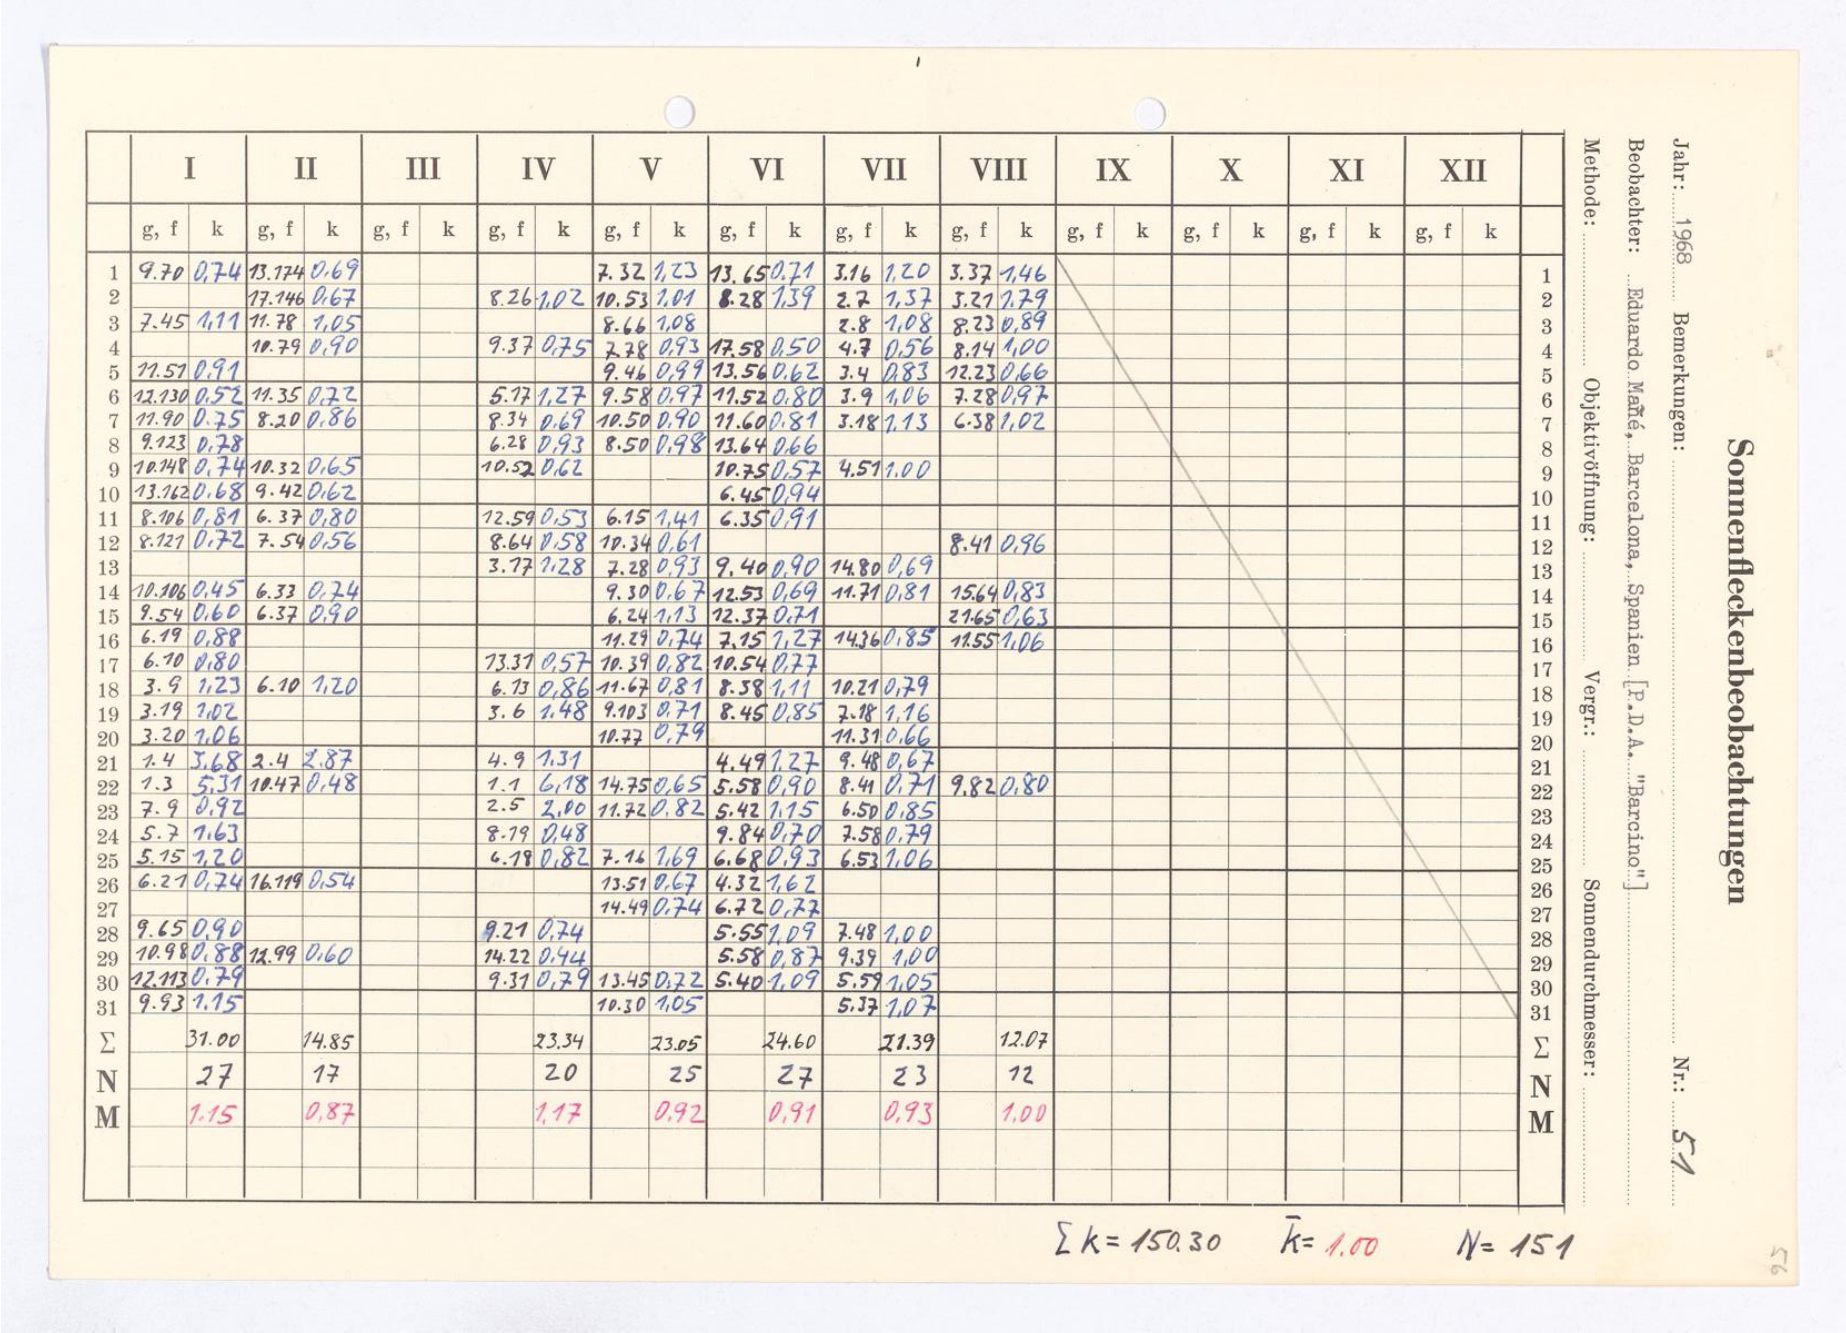 Sonnenfleckenbeobachtungen
Jahr: 1968 Bemerkungen: Nr.: 51
Beobachter: Eduardo Mañé, Barcelona, Spanien [P.D.A. "Barcino"]
Methode: Objektivöffnung: Vergr.: Sonnendurchmesser:
I II III IV V VI VII VIII IX X XI XII
g, f k g, f k g, f k g, f k g, f k g, f k g, f k g, f k g, f k g, f k g, f k g, f k
1 9.70 0,74 13.174 0.69 7.32 1,23 13.65 0.71 3.16 1,20 3.37 1,46 1
2 17.146 0.67 8.26 1,02 10.53 1,01 8.28 1,39 2.7 1,37 3.21 1.79 2
3 7.45 1,11 11.78 1,05 8.66 1,08 2.8 1,08 8.23 0,89 3
4 10.79 0,90 9.37 0,75 7.78 0,93 17.58 0,50 4.7 0,56 8.14 1,00 4
5 11.51 0,91 9.46 0,99 13.56 0,62 3.4 0,83 12.23 0,66 5
6 12.130 0,52 11.35 0,72 5.17 1,27 9.58 0,97 11.52 0,80 3.9 1,06 7.28 0,97 6
7 11.90 0.75 8.20 0,86 8.34 0,69 10.50 0,90 11.60 0.81 3.18 1,13 6.38 1,02 7
8 9.123 0,78 6.28 0,93 8.50 0,98 13.64 0.66 8
9 10.148 0,74 10.32 0,65 10.52 0,62 10.75 0,57 4.51 1.00 9
10 13.162 0.68 9.42 0,62 6.45 0,94 10
11 8.106 0,81 6.37 0,80 12.59 0,53 6.15 1,41 6.35 0,91 11
12 8.121 0,72 7.54 0,56 8.64 0,58 10.34 0,61 8.41 0,96 12
13 3.17 1,28 7.28 0,93 9.40 0,90 14.80 0,69 13
14 10.106 0,45 6.33 0,74 9.30 0,67 12.53 0,69 11.71 0,81 15.64 0,83 14
15 9.54 0,60 6.37 0,90 6.24 1,13 12.37 0,71 21.65 0,63 15
16 6.19 0,88 11.29 0,74 7.15 1,27 14.36 0,85 11.55 1,06 16
17 6.10 0,80 13.31 0,57 10.39 0,82 10.54 0,77 17
18 3.9 1,23 6.10 1,20 6.13 0,86 11.67 0,81 8.38 1,11 10.21 0,79 18
19 3.19 1,02 3.6 1.48 9.103 0,71 8.45 0,85 7.18 1,16 19
20 3.20 1,06 10.77 0,79 11.31 0,66 20
21 1.4 3,68 2.4 2,87 4.9 1.31 4.49 1.27 9.48 0,67 21
22 1.3 5,31 10.47 0,48 1.1 6,18 14.75 0,65 5.58 0,90 8.41 0,71 9.82 0,80 22
23 7.9 0,92 2.5 2,00 11.72 0,82 5.42 1,15 6.50 0,85 23
24 5.7 1,63 8.19 0,48 9.84 0,70 7.58 0,79 24
25 5.15 1,20 6.18 0,82 7.16 1,69 6.68 0,93 6.53 1,06 25
26 6.21 0,74 16.119 0,54 13.51 0,67 4.32 1,62 26
27 14.49 0,74 6.72 0,77 27
28 9.65 0,90 9.21 0,74 5.55 1,09 7.48 1,00 28
29 10.98 0,88 12.99 0,60 14.22 0,44 5.58 0,87 9.39 1,00 29
30 12.113 0,79 9.31 0,79 13.45 0,72 5.40 1,09 5.59 1,05 30
31 9.93 1.15 10.30 1,05 5.37 1,07 31
Σ 31.00 14.85 23.34 23.05 24.60 21.39 12.07 Σ
N 27 17 20 25 27 23 12 N
M 1.15 0,87 1,17 0.92 0,91 0,93 1,00 M
Σk = 150.30 k̄ = 1.00 N = 151
56